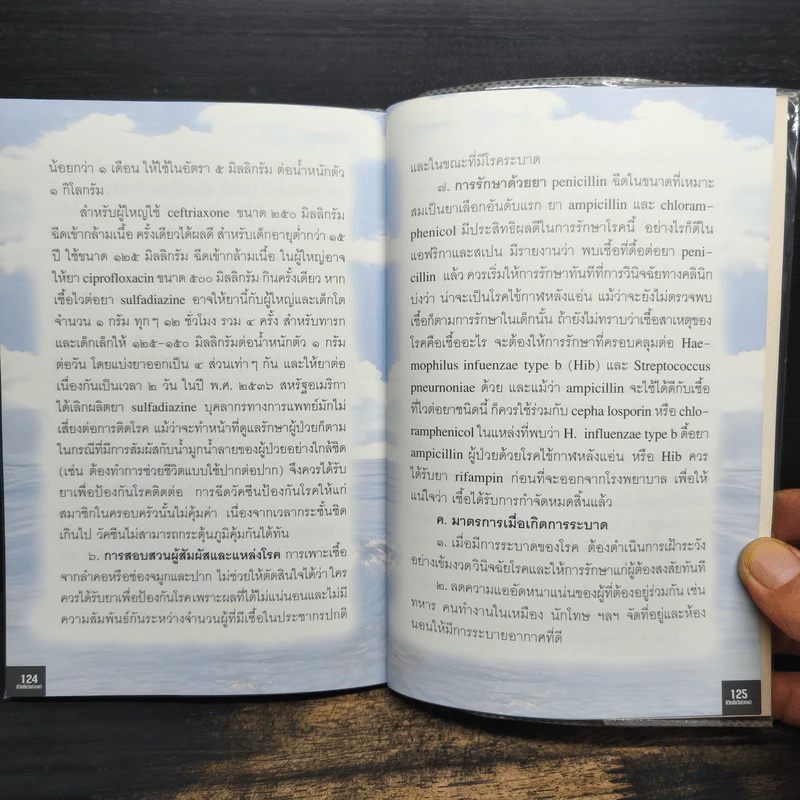 น้อยกว่า ๑ เดือน ให้ใช้ในอัตรา ๕ มิลลิกรัม ต่อน้ำหนักตัว
๑ กิโลกรัม
สำหรับผู้ใหญ่ใช้ ceftriaxone ขนาด ๒๕๐ มิลลิกรัม
ฉีดเข้ากล้ามเนื้อ ครั้งเดียวได้ผลดี สำหรับเด็กอายุต่ำกว่า ๑๕
ปี ใช้ขนาด ๑๒๕ มิลลิกรัม ฉีดเข้ากล้ามเนื้อ ในผู้ใหญ่อาจ
ให้ยา ciprofloxacin ขนาด ๕๐๐ มิลลิกรัม กินครั้งเดียว หาก
เชื้อไวต่อยา sulfadiazine อาจให้ยานี้กับผู้ใหญ่และเด็กโต
จำนวน ๑ กรัม ทุกๆ ๑๒ ชั่วโมง รวม ๔ ครั้ง สำหรับทารก
และเด็กเล็กให้ ๑๒๕-๑๕๐ มิลลิกรัมต่อน้ำหนักตัว ๑ กรัม
ต่อวัน โดยแบ่งยาออกเป็น ๔ ส่วนเท่าๆ กัน และให้ยาต่อ
เนื่องกันเป็นเวลา ๒ วัน ในปี พ.ศ. ๒๕๓๖ สหรัฐอเมริกา
ได้เลิกผลิตยา sulfadiazine บุคลากรทางการแพทย์มักไม่
เสี่ยงต่อการติดโรค แม้ว่าจะทำหน้าที่ดูแลรักษาผู้ป่วยก็ตาม
ในกรณีที่มีการสัมผัสกับน้ำมูกน้ำลายของผู้ป่วยอย่างใกล้ชิด
(เช่น ต้องทำการช่วยชีวิตแบบใช้ปากต่อปาก) จึงควรได้รับ
ยาเพื่อป้องกันโรคติดต่อ การฉีดวัคซีนป้องกันโรคให้แก่
สมาชิกในครอบครัวนั้นไม่คุ้มค่า เนื่องจากเวลากระชั้นชิด
เกินไป วัคซีนไม่สามารถกระตุ้นภูมิคุ้มกันได้ทัน
๖. การสอบสวนผู้สัมผัสและแหล่งโรค การเพาะเชื้อ
จากลำคอหรือช่องจมูกและปาก ไม่ช่วยให้ตัดสินใจได้ว่า ใคร
ควรได้รับยาเพื่อป้องกันโรคเพราะผลที่ได้ไม่แน่นอนและไม่มี
ความสัมพันธ์กันระหว่างจำนวนผู้ที่มีเชื้อในประชากรปกติ
124
และในขณะที่มีโรคระบาด
๗. การรักษาด้วยยา penicillin ฉีดในขนาดที่เหมาะ
สมเป็นยาเลือกอันดับแรก ยา ampicillin และ chloram-
phenicol มีประสิทธิผลดีในการรักษาโรคนี้ อย่างไรก็ดีใน
แอฟริกาและสเปน มีรายงานว่า พบเชื้อที่ดื้อต่อยา peni-
cillin แล้ว ควรเริ่มให้การรักษาทันทีที่การวินิจฉัยทางคลินิก
บ่งว่า น่าจะเป็นโรคไข้กาฬหลังแอ่น แม้ว่าจะยังไม่ตรวจพบ
เชื้อก็ตามการรักษาในเด็กนั้น ถ้ายังไม่ทราบว่าเชื้อสาเหตุของ
โรคคือเชื้ออะไร จะต้องให้การรักษาที่ครอบคลุมต่อ Hae-
mophilus infuenzae type b (Hib) และ Streptococcus
pneurnoniae ด้วย และแม้ว่า ampicillin จะใช้ได้ดีกับเชื้อ
ที่ไวต่อยาชนิดนี้ ก็ควรใช้ร่วมกับ cepha losporin หรือ chlo-
ramphenicol ในแหล่งที่พบว่า H. influenzae type b ดื้อยา
ampicillin ผู้ป่วยด้วยโรคไข้กาฬหลังแอ่น หรือ Hib ควร
ได้รับยา rifampin ก่อนที่จะออกจากโรงพยาบาล เพื่อให้
แน่ใจว่า เชื้อได้รับการกำจัดหมดสิ้นแล้ว
ค. มาตรการเมื่อเกิดการระบาด
๑. เมื่อมีการระบาดของโรค ต้องดำเนินการเฝ้าระวัง
อย่างเข้มงวด วินิจฉัยโรคและให้การรักษาแก่ผู้ต้องสงสัยทันที
๒. ลดความแออัดหนาแน่นของผู้ที่ต้องอยู่ร่วมกัน เช่น
ทหาร คนทำงานในเหมือง นักโทษ ฯลฯ จัดที่อยู่และห้อง
นอนให้มีการระบายอากาศที่ดี
125